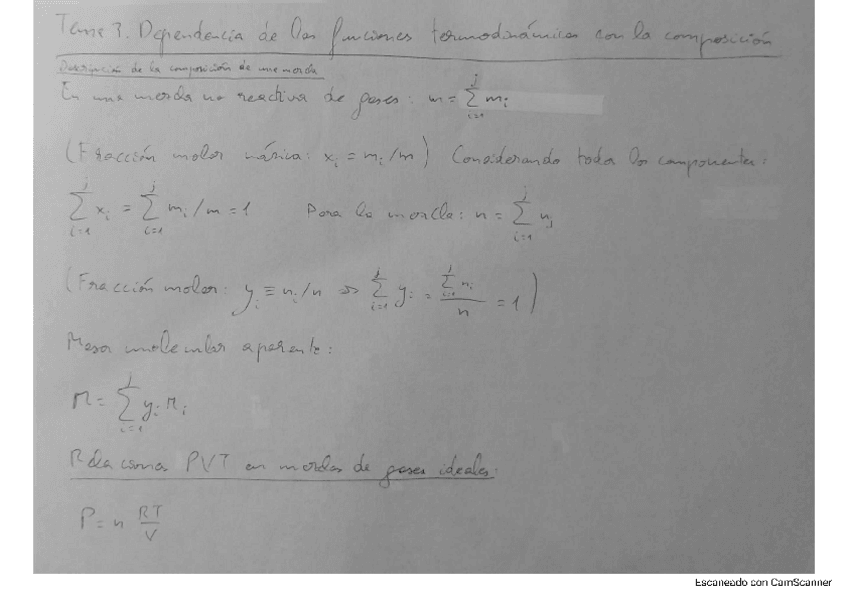 Tema 3. Dependencia de las funciones termodinámicas con la composición
Descripción de la composición de una mezcla
En una mezcla no reactiva de gases: m = ∑_{i=1}^{j} m_i
(Fracción molar másica: x_i = m_i/m) Considerando todos los componentes:
∑_{i=1}^{j} x_i = ∑_{i=1}^{j} m_i/m = 1 Para la mezcla: n = ∑_{i=1}^{j} n_i
(Fracción molar: y_i ≡ n_i/n ⇒ ∑_{i=1}^{j} y_i = ∑_{i=1}^{j} n_i / n = 1)
Masa molecular aparente:
M = ∑_{i=1}^{j} y_i M_i
Relaciones PVT en mezclas de gases ideales:
P = n RT/V
Escaneado con CamScanner